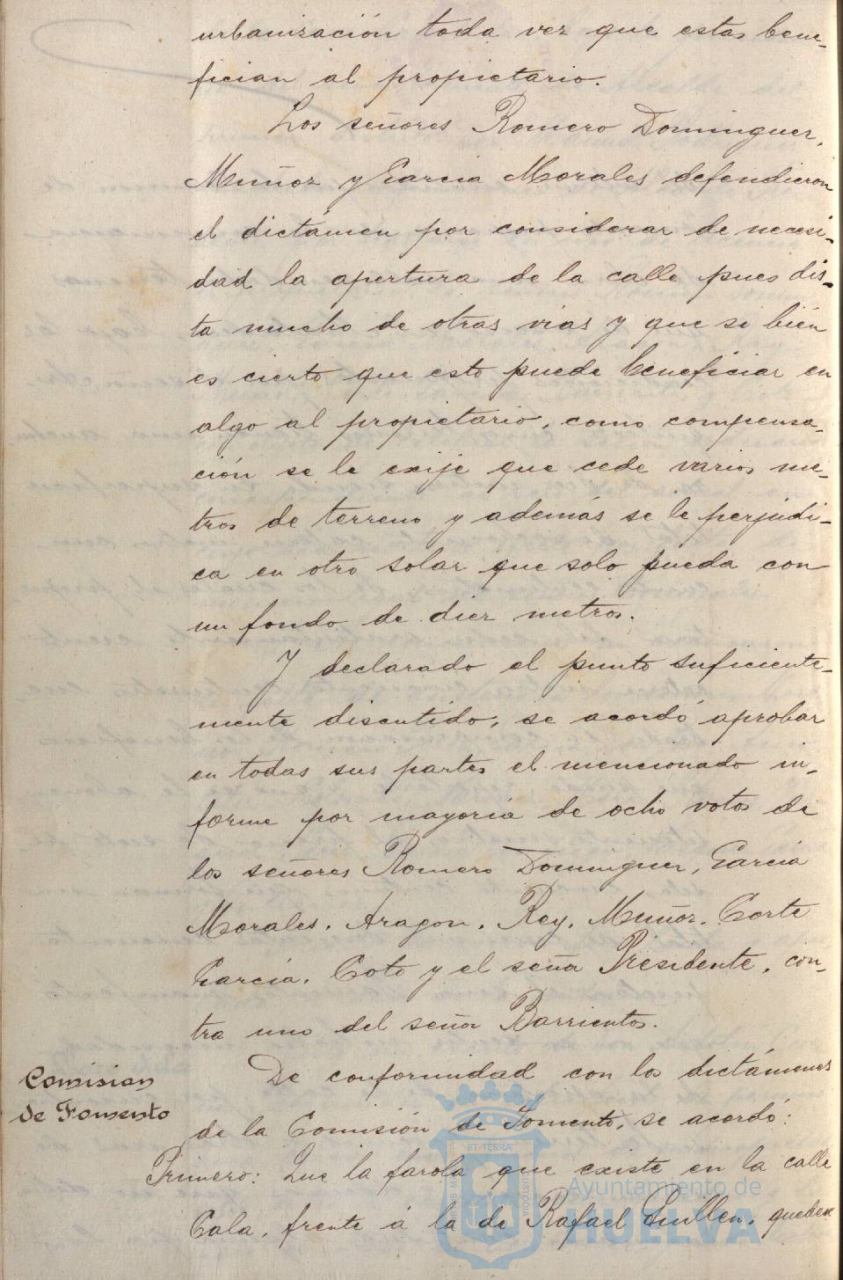 urbanización toda vez que estas bene-
fician al propietario.
Los señores Romero Dominguez,
Muñoz y Garcia Morales defendieron
el dictámen por considerar de necesi-
dad la apertura de la calle pues dis-
ta mucho de otras vias y que si bién
es cierto que esto puede beneficiar en
algo al propietario, como compensa-
ción se le exije que cede varios me-
tros de terreno y además se le perjudi-
ca en otro solar que solo queda con
un fondo de diez metros.
Y declarado el punto suficiente-
mente discutido, se acordó aprobar
en todas sus partes el mencionado in-
forme por mayoria de ocho votos de
los señores Romero Dominguez, García
Morales, Aragon, Rey, Muñoz, Corte
García, Coto y el señor Presidente, con-
tra uno del señor Barrientos.
Comision
de Fomento
De conformidad con los dictámenes
de la Comisión de Fomento, se acordó:
Primero: Que la farola que existe en la calle
Cala, frente á la de Rafael Guillen, quede
Ayuntamiento de
HUELVA